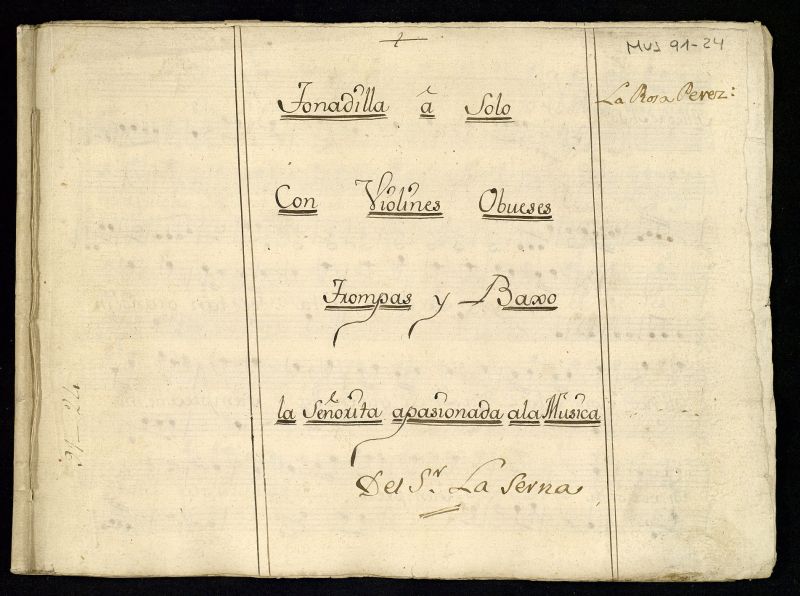 MUS 91-24
La Rosa Perez:
Tonadilla â Solo
Con Violines Obueses
Trompas y Baxo
la Señorita apasionada ala Musica
Del Sr. La Serna
91-24